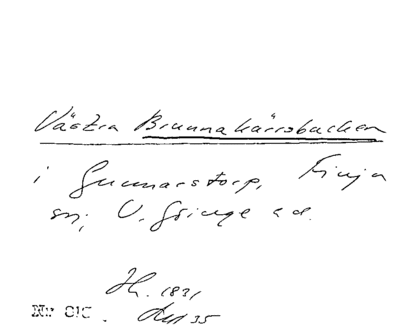 Västra Brunnakärrsbacken
i Gunnarstorp, Finja
sn, V. Göinge hd.
Jh. 1831
Nr 01C.